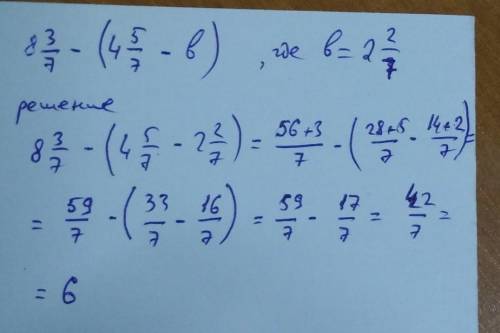 8 3/7 - (4 5/7 - в) , где в = 2 2/7
решение
8 3/7 - (4 5/7 - 2 2/7) = 56+3/7 - (28+5/7 - 14+2/7) =
= 59/7 - (33/7 - 16/7) = 59/7 - 17/7 = 42/7 =
= 6